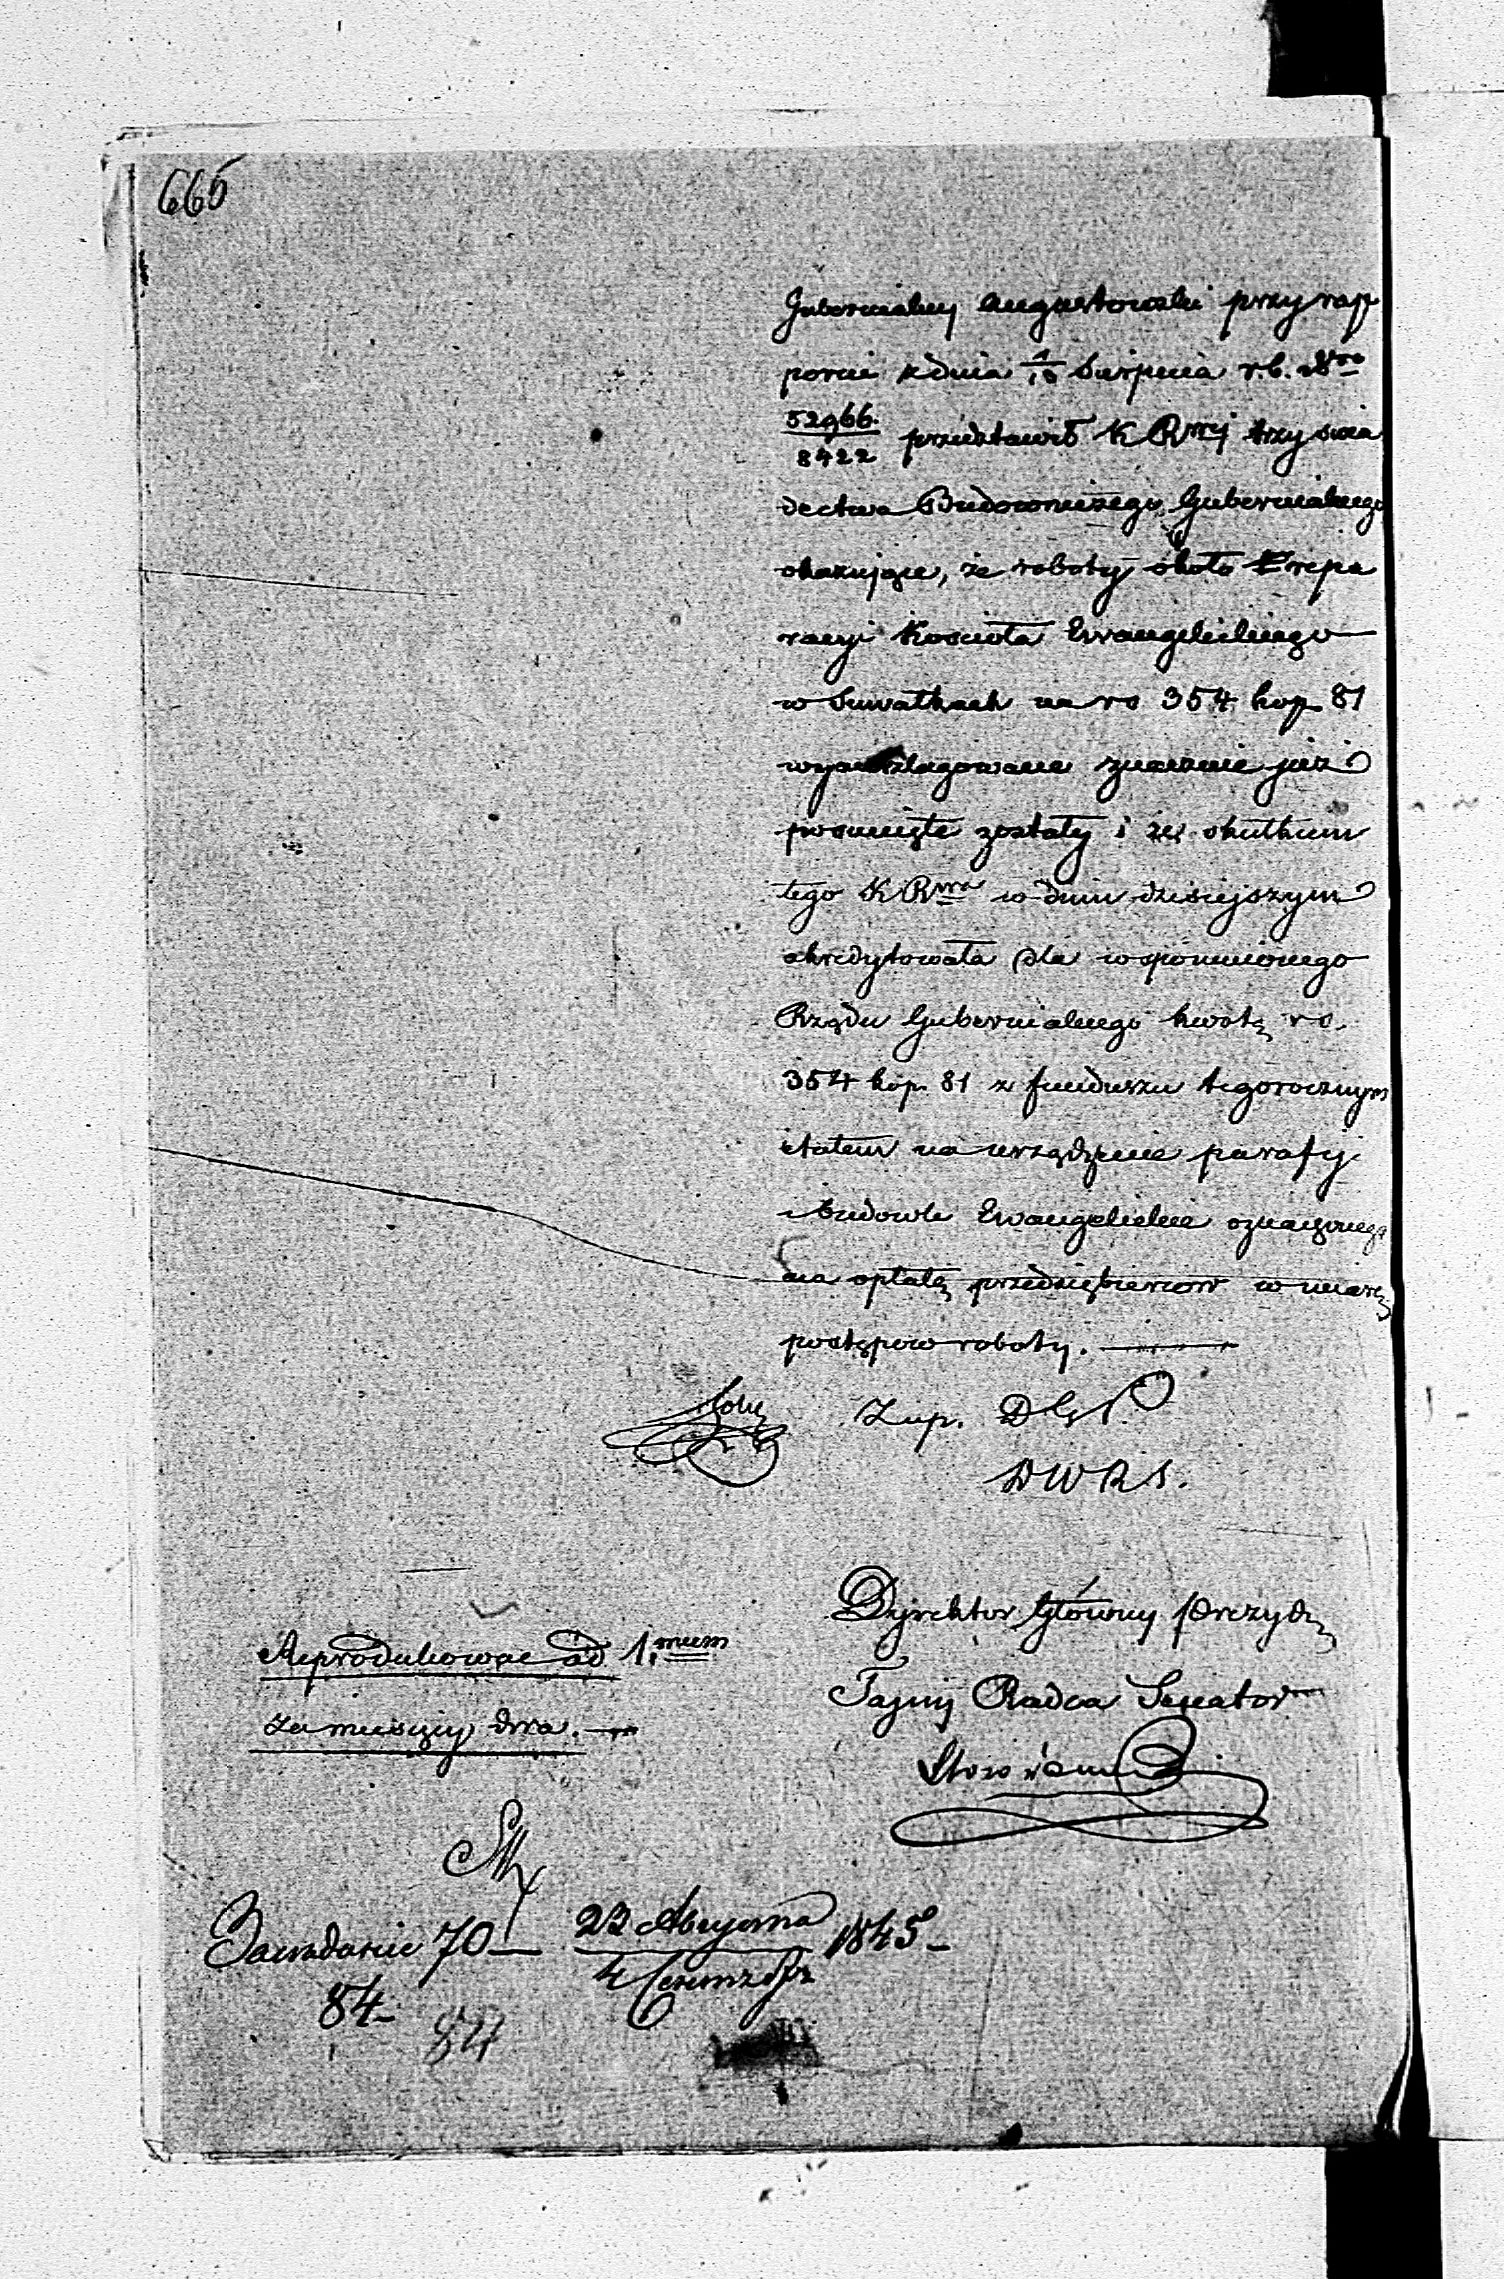 665
Gubernialny Augustowski przy rap
porcie z dnia 1/13 Sierpnia r.b. Nro
52966/8422 przedstawił K Rwej trzy swia
dectwa Budowniczego Gubernialnego
okazujące, że roboty około repa
racyi Kościoła Ewangelickiego
w Suwałkach na rs 354 kop 81
wyanszlagowane znacznie już
posunięte zostały i że skutkiem
tego K Rwa w dniu dzisiejszym
akredytowała dla wspomnionego
Rządu Gubernialnego kwotę rs.
354 kop. 81 z funduszu tegorocznym
etatem na urządzenie parafij
i budowle Ewangelickie oznaczonego
na opłatę przedsiębiorców w miarę
postępow roboty.
Zup. D G P
D W R S.
Dyrektor Główny Prezyd
Tajny Radca Senator
Reprodukowac ad 1.mum
za miesięcy dwa.
70
22 1845
84
84